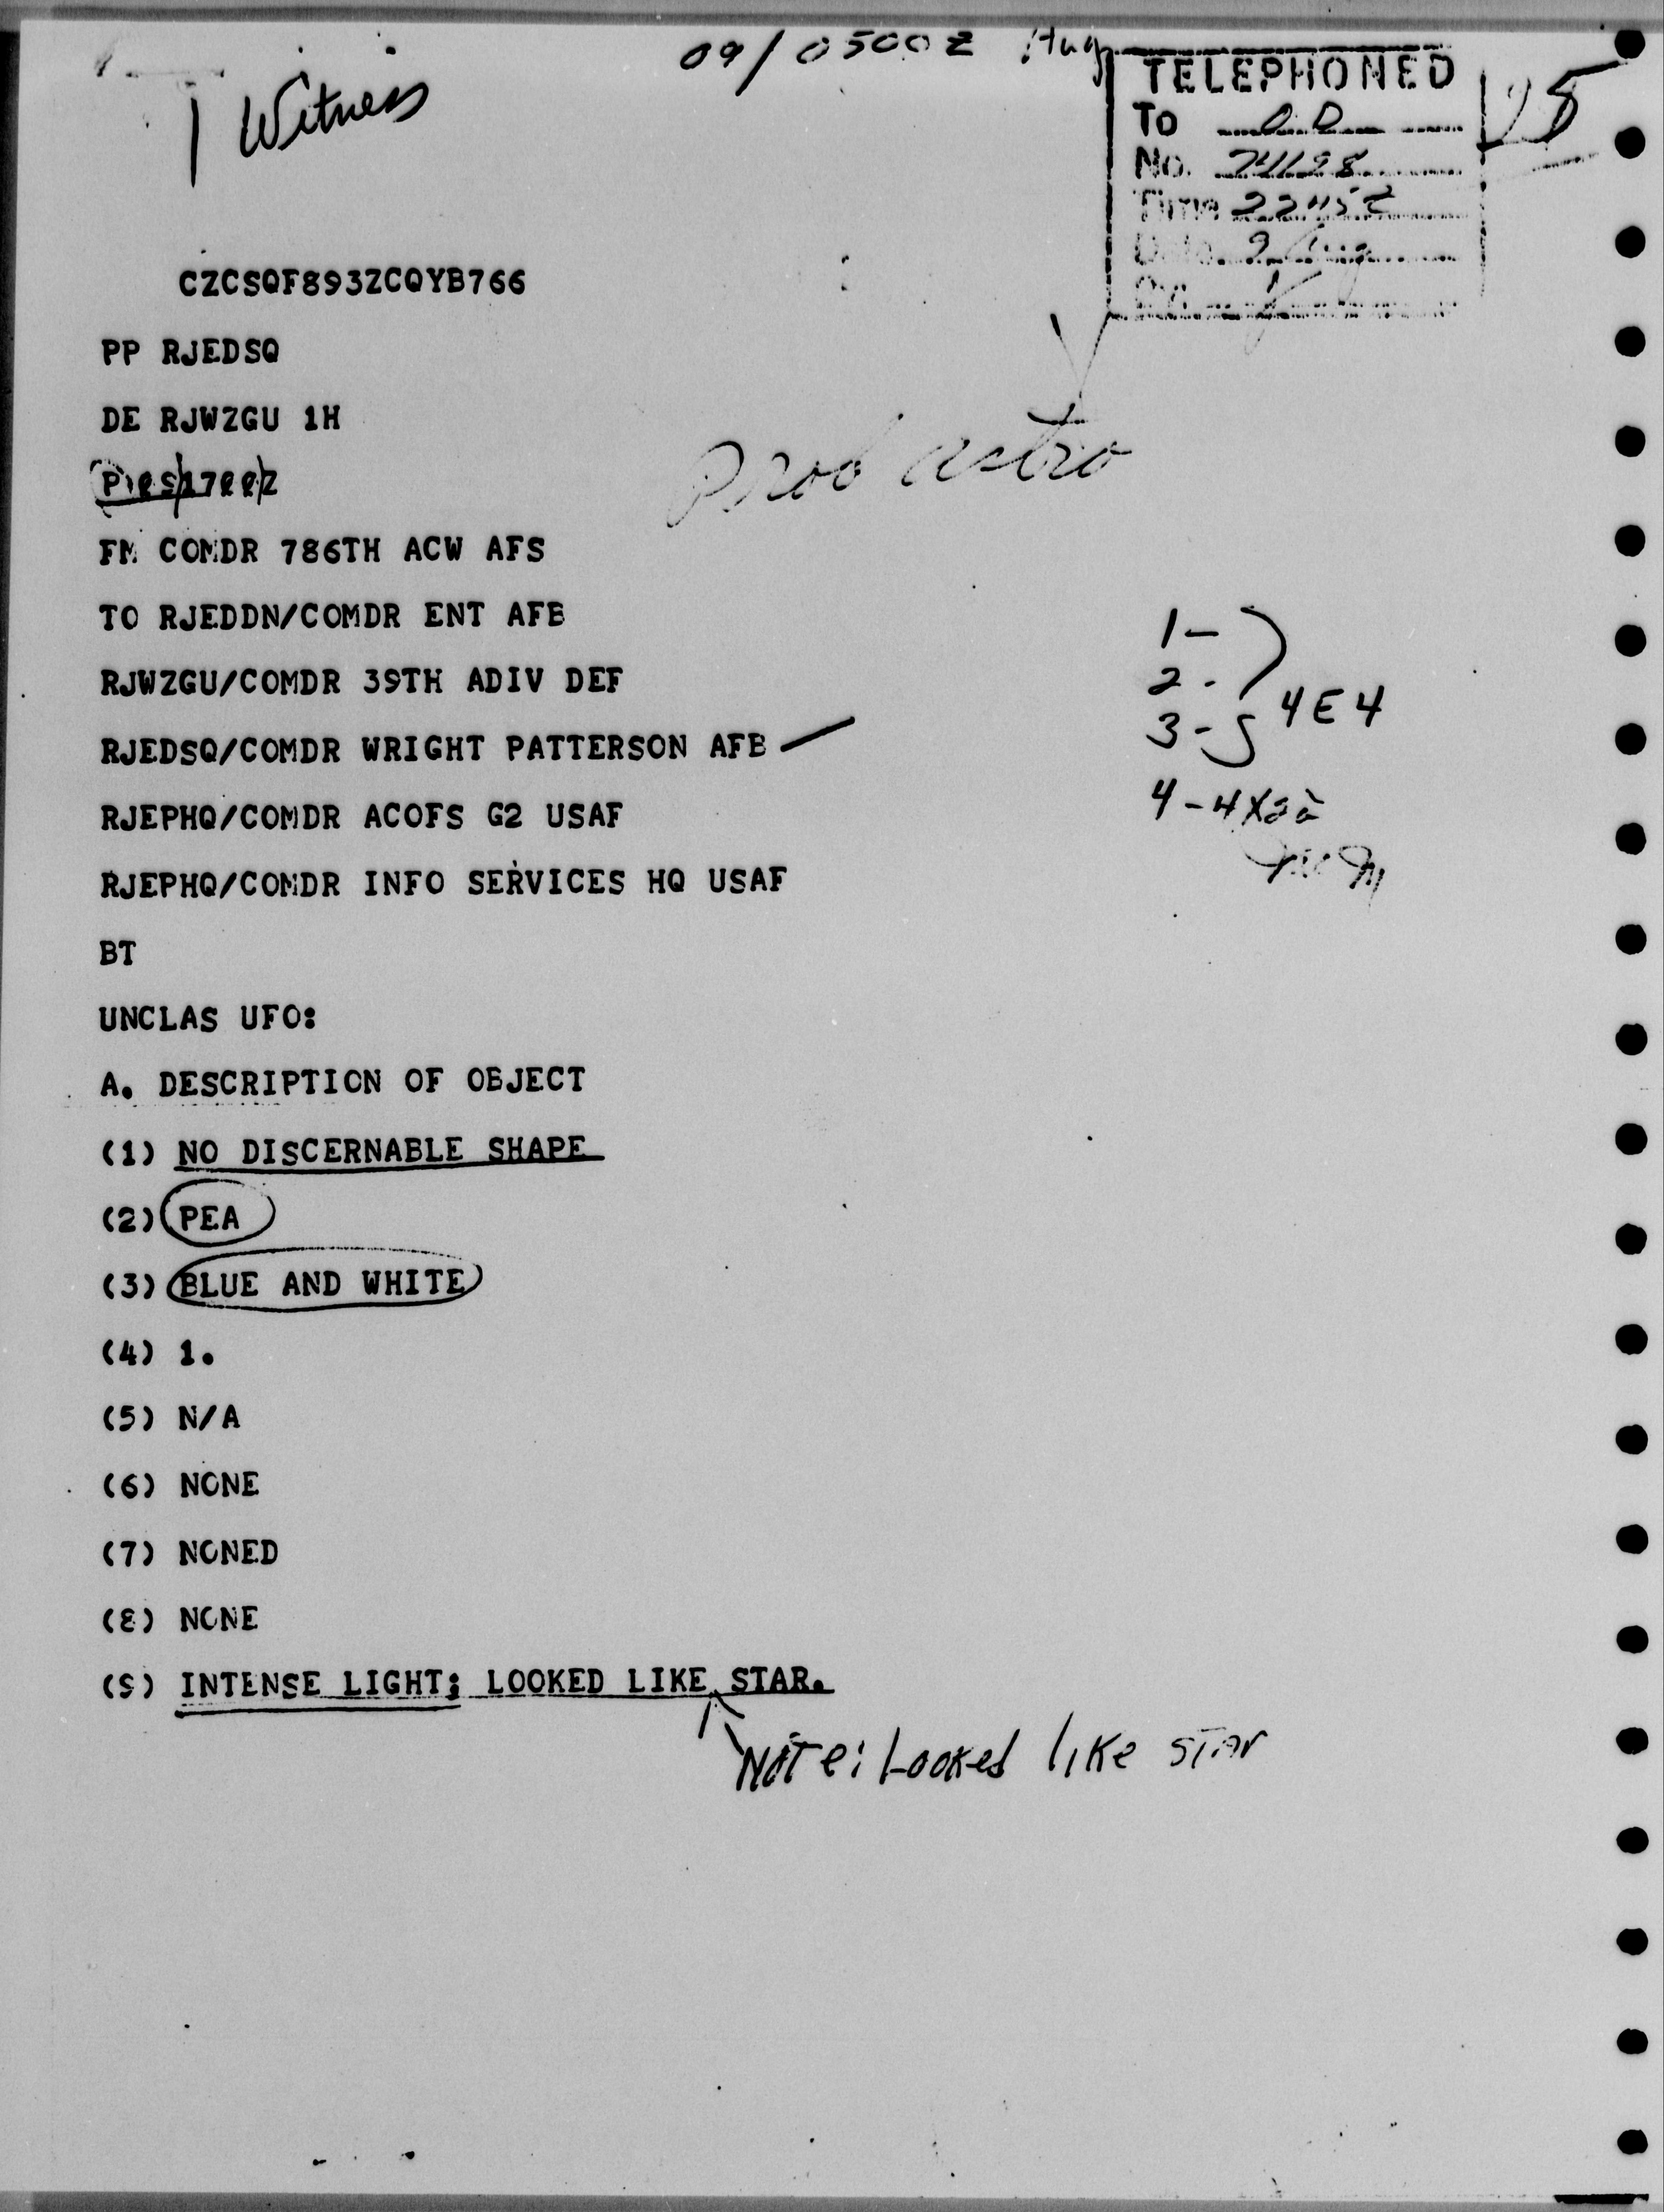 09/0500Z Aug
1 Witness
TELEPHONED
To
No.
Time
Date 9 Aug
By
CZCSQF893ZCQYB766
PP RJEDSQ
DE RJWZGU 1H
FM COMDR 786TH ACW AFS
TO RJEDDN/COMDR ENT AFB
RJWZGU/COMDR 39TH ADIV DEF
RJEDSQ/COMDR WRIGHT PATTERSON AFB
RJEPHQ/COMDR ACOFS G2 USAF
RJEPHQ/COMDR INFO SERVICES HQ USAF
Prob astro
1-
2-
3- 4E4
BT
UNCLAS UFO:
A. DESCRIPTION OF OBJECT
(1) NO DISCERNABLE SHAPE
(2) PEA
(3) BLUE AND WHITE
(4) 1.
(5) N/A
(6) NONE
(7) NONED
(8) NONE
(9) INTENSE LIGHT; LOOKED LIKE STAR.
Note: Looked like star